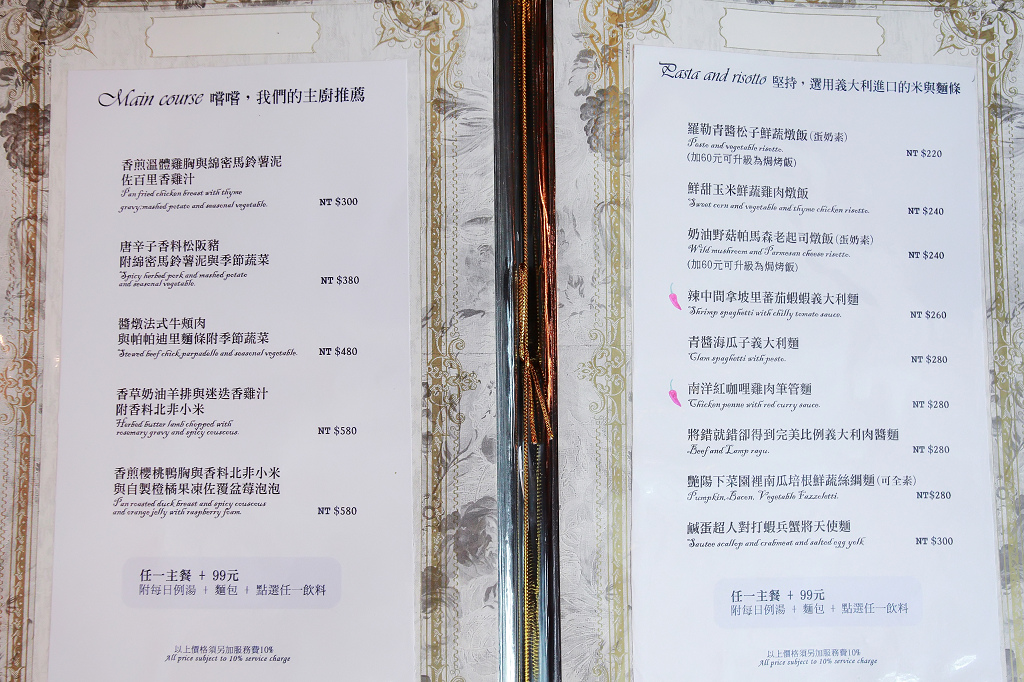 Main course 嚐嚐，我們的主廚推薦
香煎溫體雞胸與綿密馬鈴薯泥
佐百里香雞汁
Pan fried chicken breast with thyme
gravy,mashed potato and seasonal vegetable.
NT $300
唐辛子香料松阪豬
附綿密馬鈴薯泥與季節蔬菜
Spicy herbed pork and mashed potato
and seasonal vegetable.
NT $380
醬燉法式牛頰肉
與帕帕迪里麵條附季節蔬菜
Stewed beef chick,parpadello and seasonal vegetable.
NT $480
香草奶油羊排與迷迭香雞汁
附香料北非小米
Herbed butter lamb chopped with
rosemary gravy and spicy couscous.
NT $580
香煎櫻桃鴨胸與香料北非小米
與自製橙橘果凍佐覆盆莓泡泡
Pan roasted duck breast and spicy couscous
and orange jelly with raspberry foam.
NT $580
任一主餐 + 99元
附每日例湯 + 麵包 + 點選任一飲料
以上價格須另加服務費10%
All price subject to 10% service charge
Pasta and risotto 堅持，選用義大利進口的米與麵條
羅勒青醬松子鮮蔬燉飯(蛋奶素)
Pesto and vegetable risotto.
(加60元可升級為焗烤飯)
NT $220
鮮甜玉米鮮蔬雞肉燉飯
Sweet corn and vegetable and thyme chicken risotto.
NT $240
奶油野菇帕馬森老起司燉飯(蛋奶素)
Wild mushroom and Parmesan cheese risotto.
(加60元可升級為焗烤飯)
NT $240
辣中間拿坡里蕃茄蝦蝦義大利麵
Shrimp spaghetti with chilly tomato sauce.
NT $260
青醬海瓜子義大利麵
Clam spaghetti with pesto.
NT $280
南洋紅咖哩雞肉筆管麵
Chicken penne with red curry sauce.
NT $280
將錯就錯卻得到完美比例義大利肉醬麵
Beef and Lamp ragu.
NT $280
艷陽下菜園裡南瓜培根鮮蔬絲綢麵(可全素)
Pumpkin,Bacon, Vegetable Fazzoletti.
NT $280
鹹蛋超人對打蝦兵蟹將天使麵
Sautee scallop and crabmeat and salted egg yolk
NT $300
任一主餐 + 99元
附每日例湯 + 麵包 + 點選任一飲料
以上價格須另加服務費10%
All price subject to 10% service charge